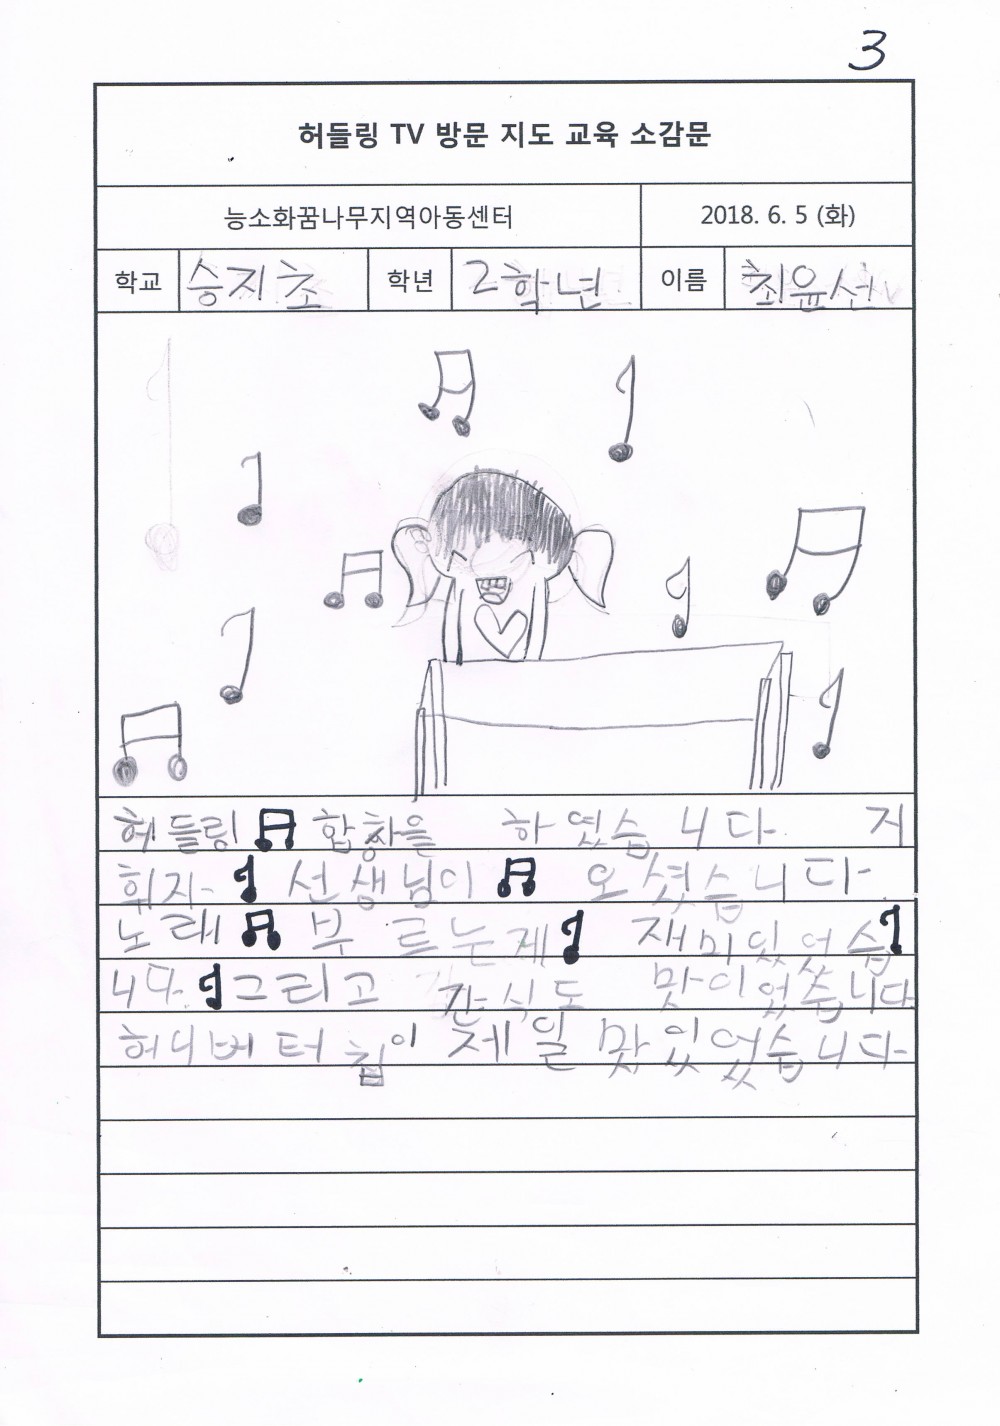 3
허들링 TV 방문 지도 교육 소감문
능소화꿈나무지역아동센터 2018. 6. 5 (화)
학교 승지초 학년 2학년 이름 최윤선
허들링 합창을 하였습니다 지
휘자 선생님이 오셨습니다
노래 부르는게 재미있었습
니다. 그리고 간식도 맛이었습니다
허니버터칩이 제일 맛있었습니다